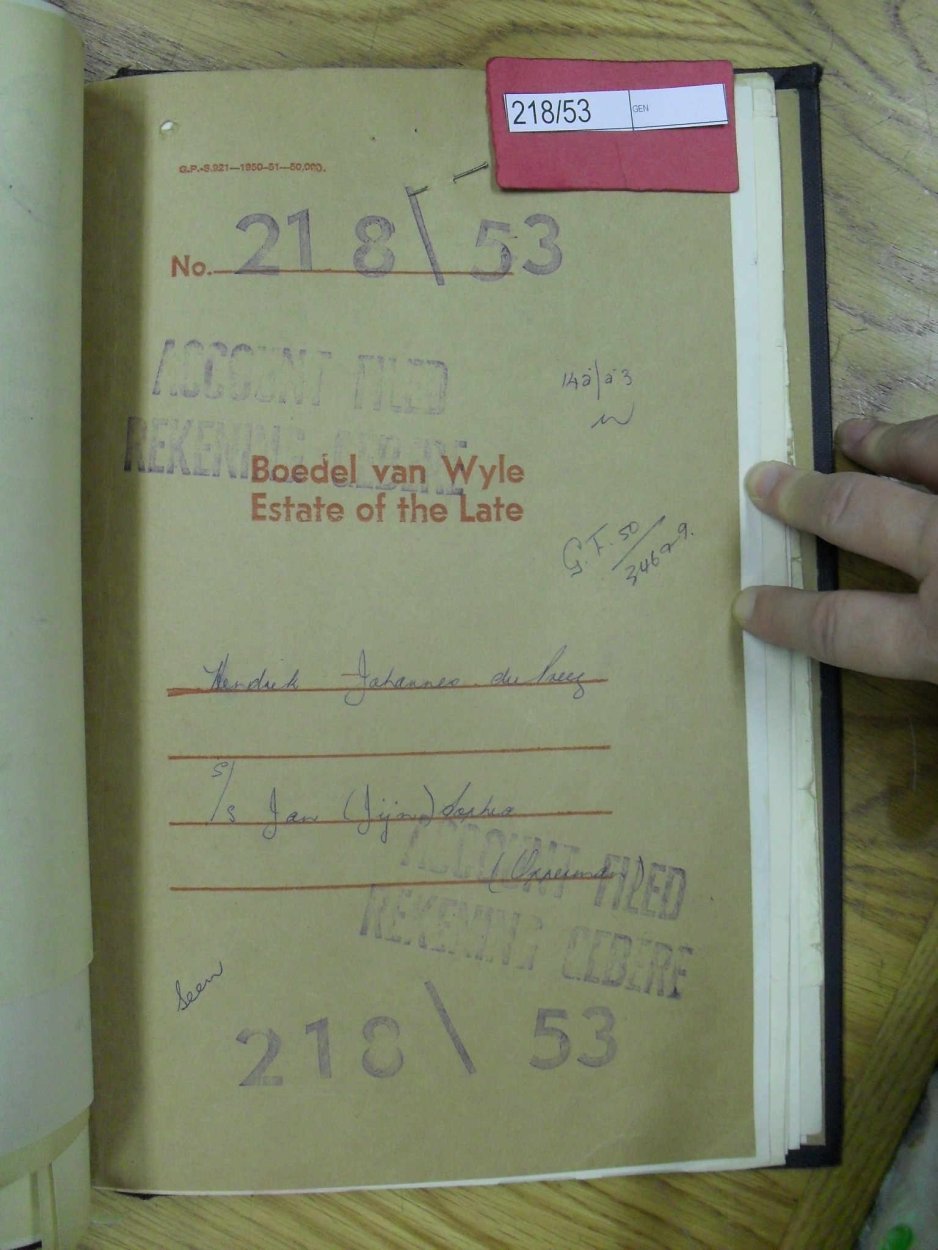 218/53 GEN
G.P.-S.921—1950-51—50,000.
No. 218 \ 53
ACCOUNT FILED
REKENING GEBERE
Boedel van Wyle
Estate of the Late
G.F. 50/
Hendrik Johannes du Preez
s/s Jan (Jijn) Sophia
ACCOUNT FILED
REKENING GEBERE
Seen
218 \ 53